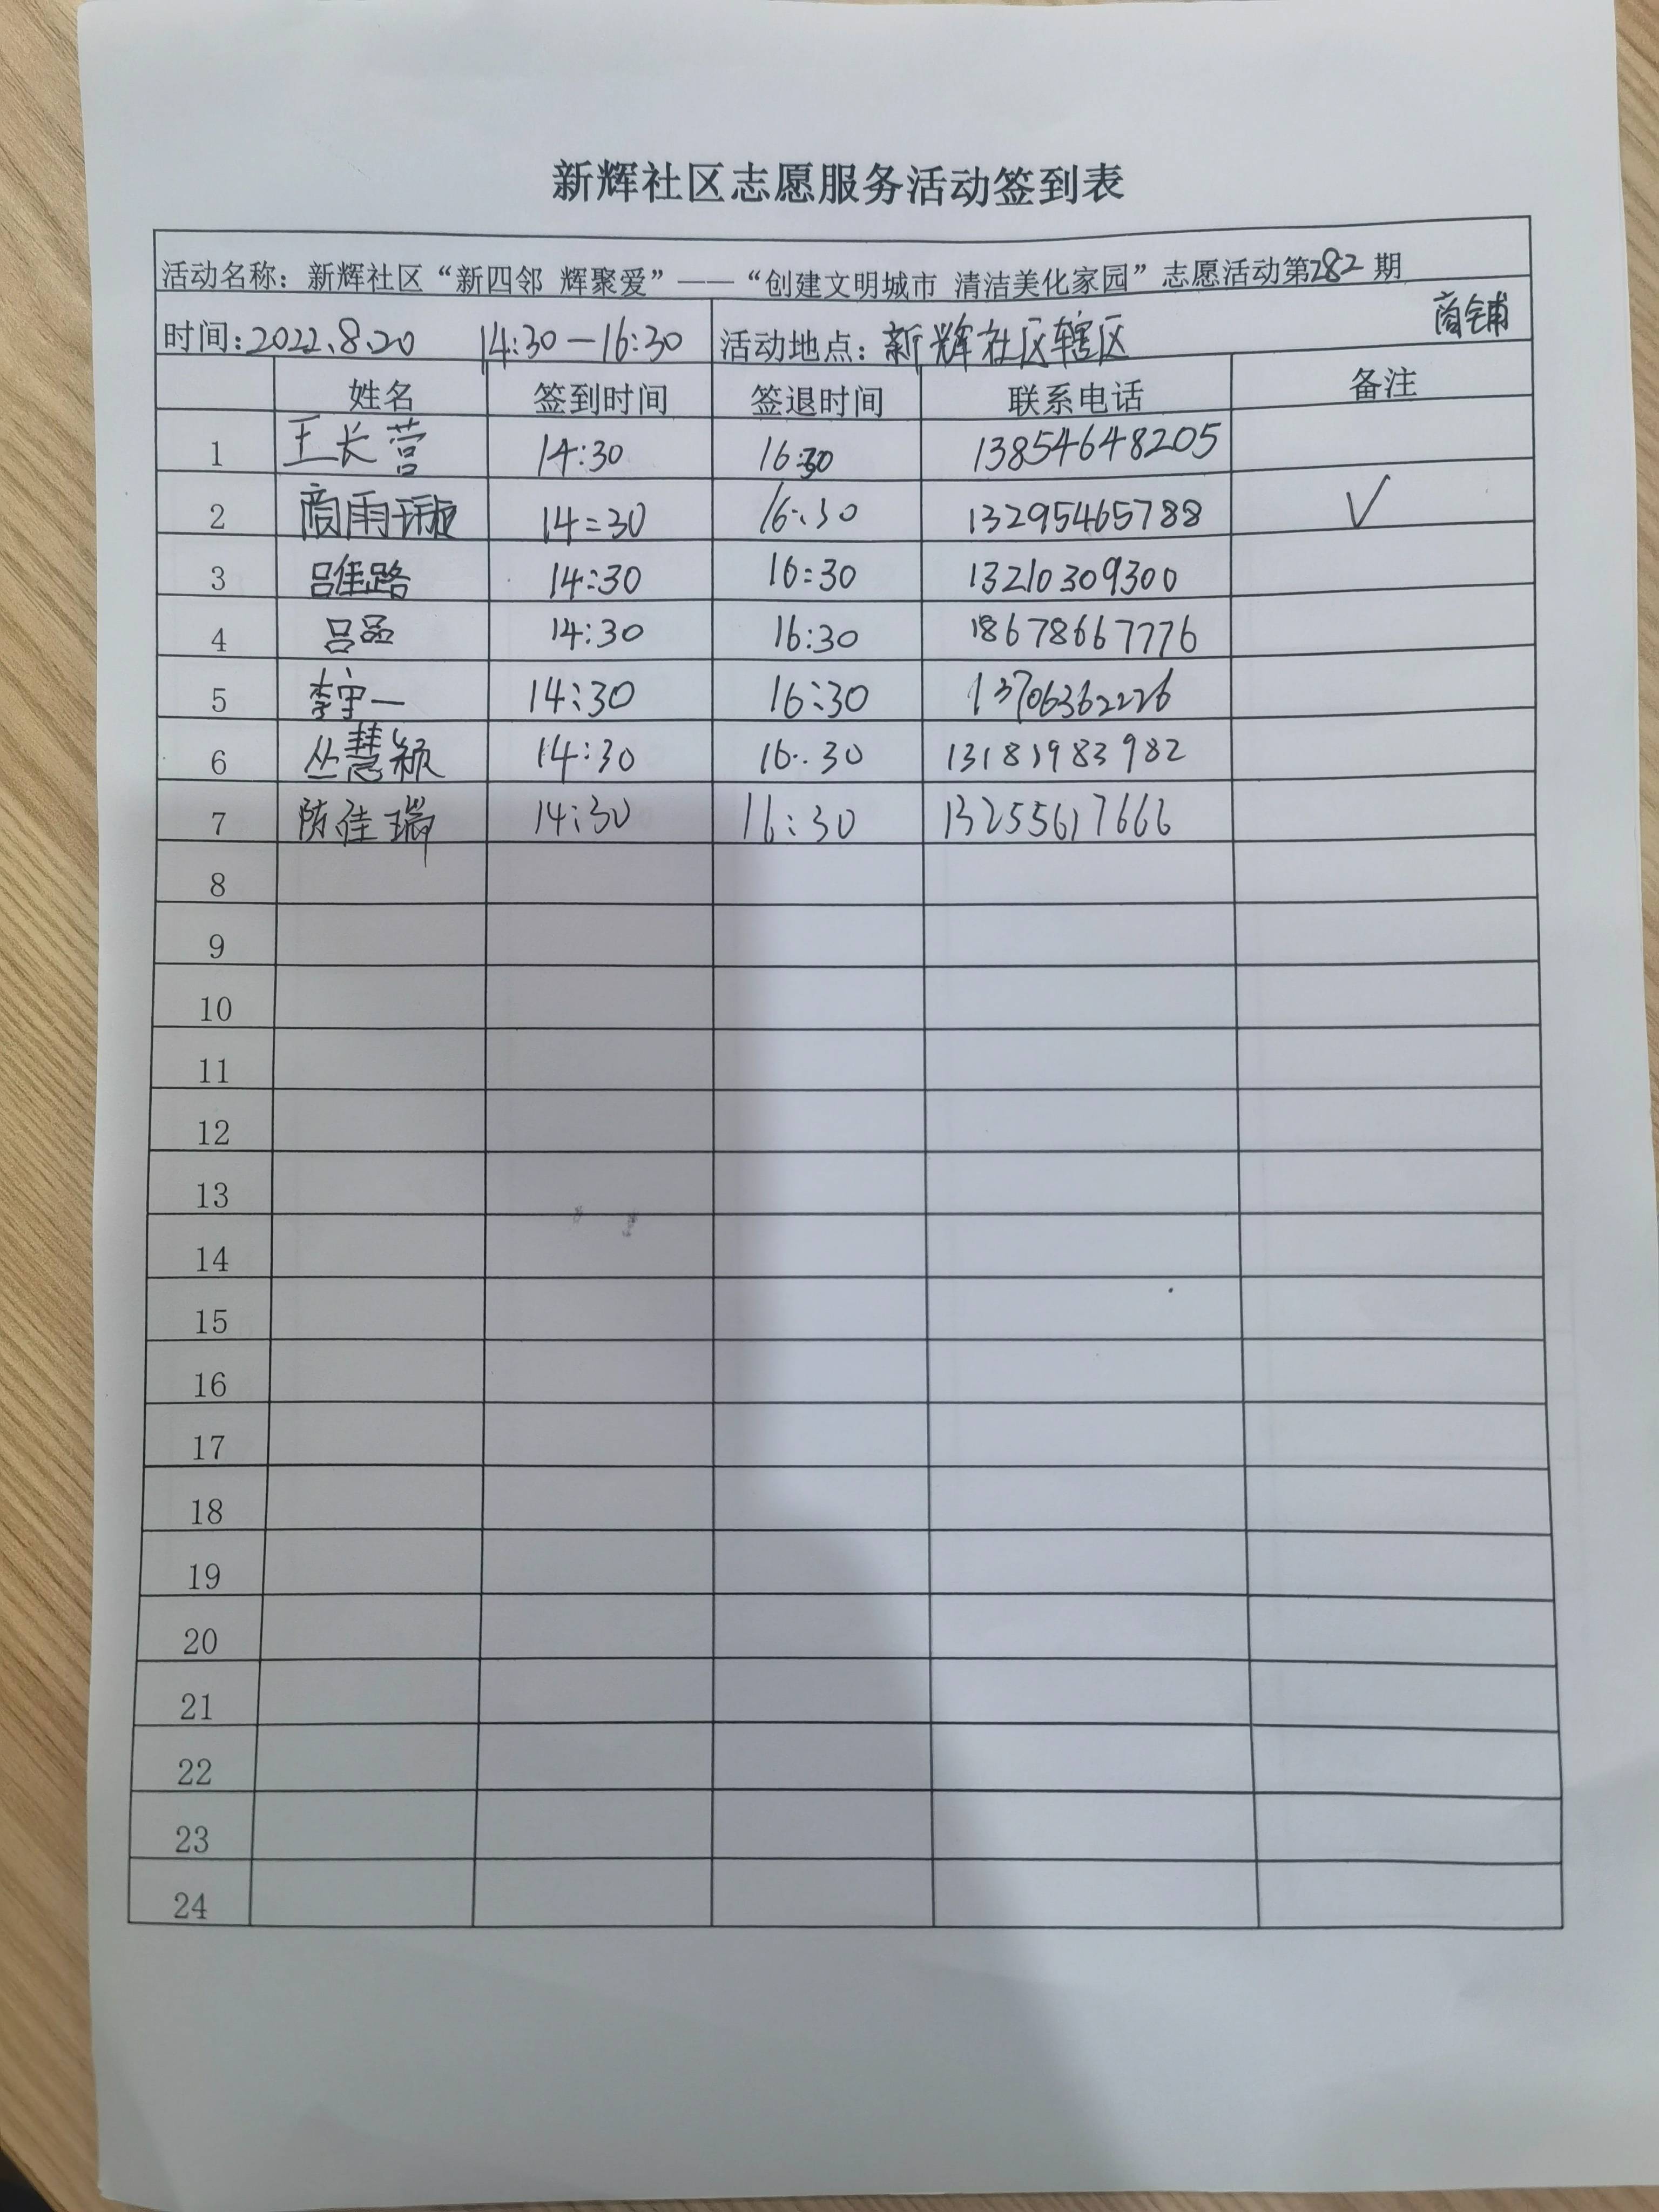 新辉社区志愿服务活动签到表
活动名称：新辉社区“新四邻 辉聚爱”——“创建文明城市 清洁美化家园”志愿活动第282期
时间：2022.8.20 14:30—16:30 活动地点：新辉社区辖区 商铺
姓名 签到时间 签退时间 联系电话 备注
1 王长营 14:30 16:30 13854648205
2 商雨璇 14:30 16:30 13295465788 √
3 吕佳路 14:30 16:30 13210309300
4 吕 14:30 16:30 18678667776
5 李宇一 14:30 16:30 13706362226
6 丛慧颖 14:30 16:30 13181983982
7 陈佳瑞 14:30 16:30 13255617666
8
9
10
11
12
13
14
15
16
17
18
19
20
21
22
23
24